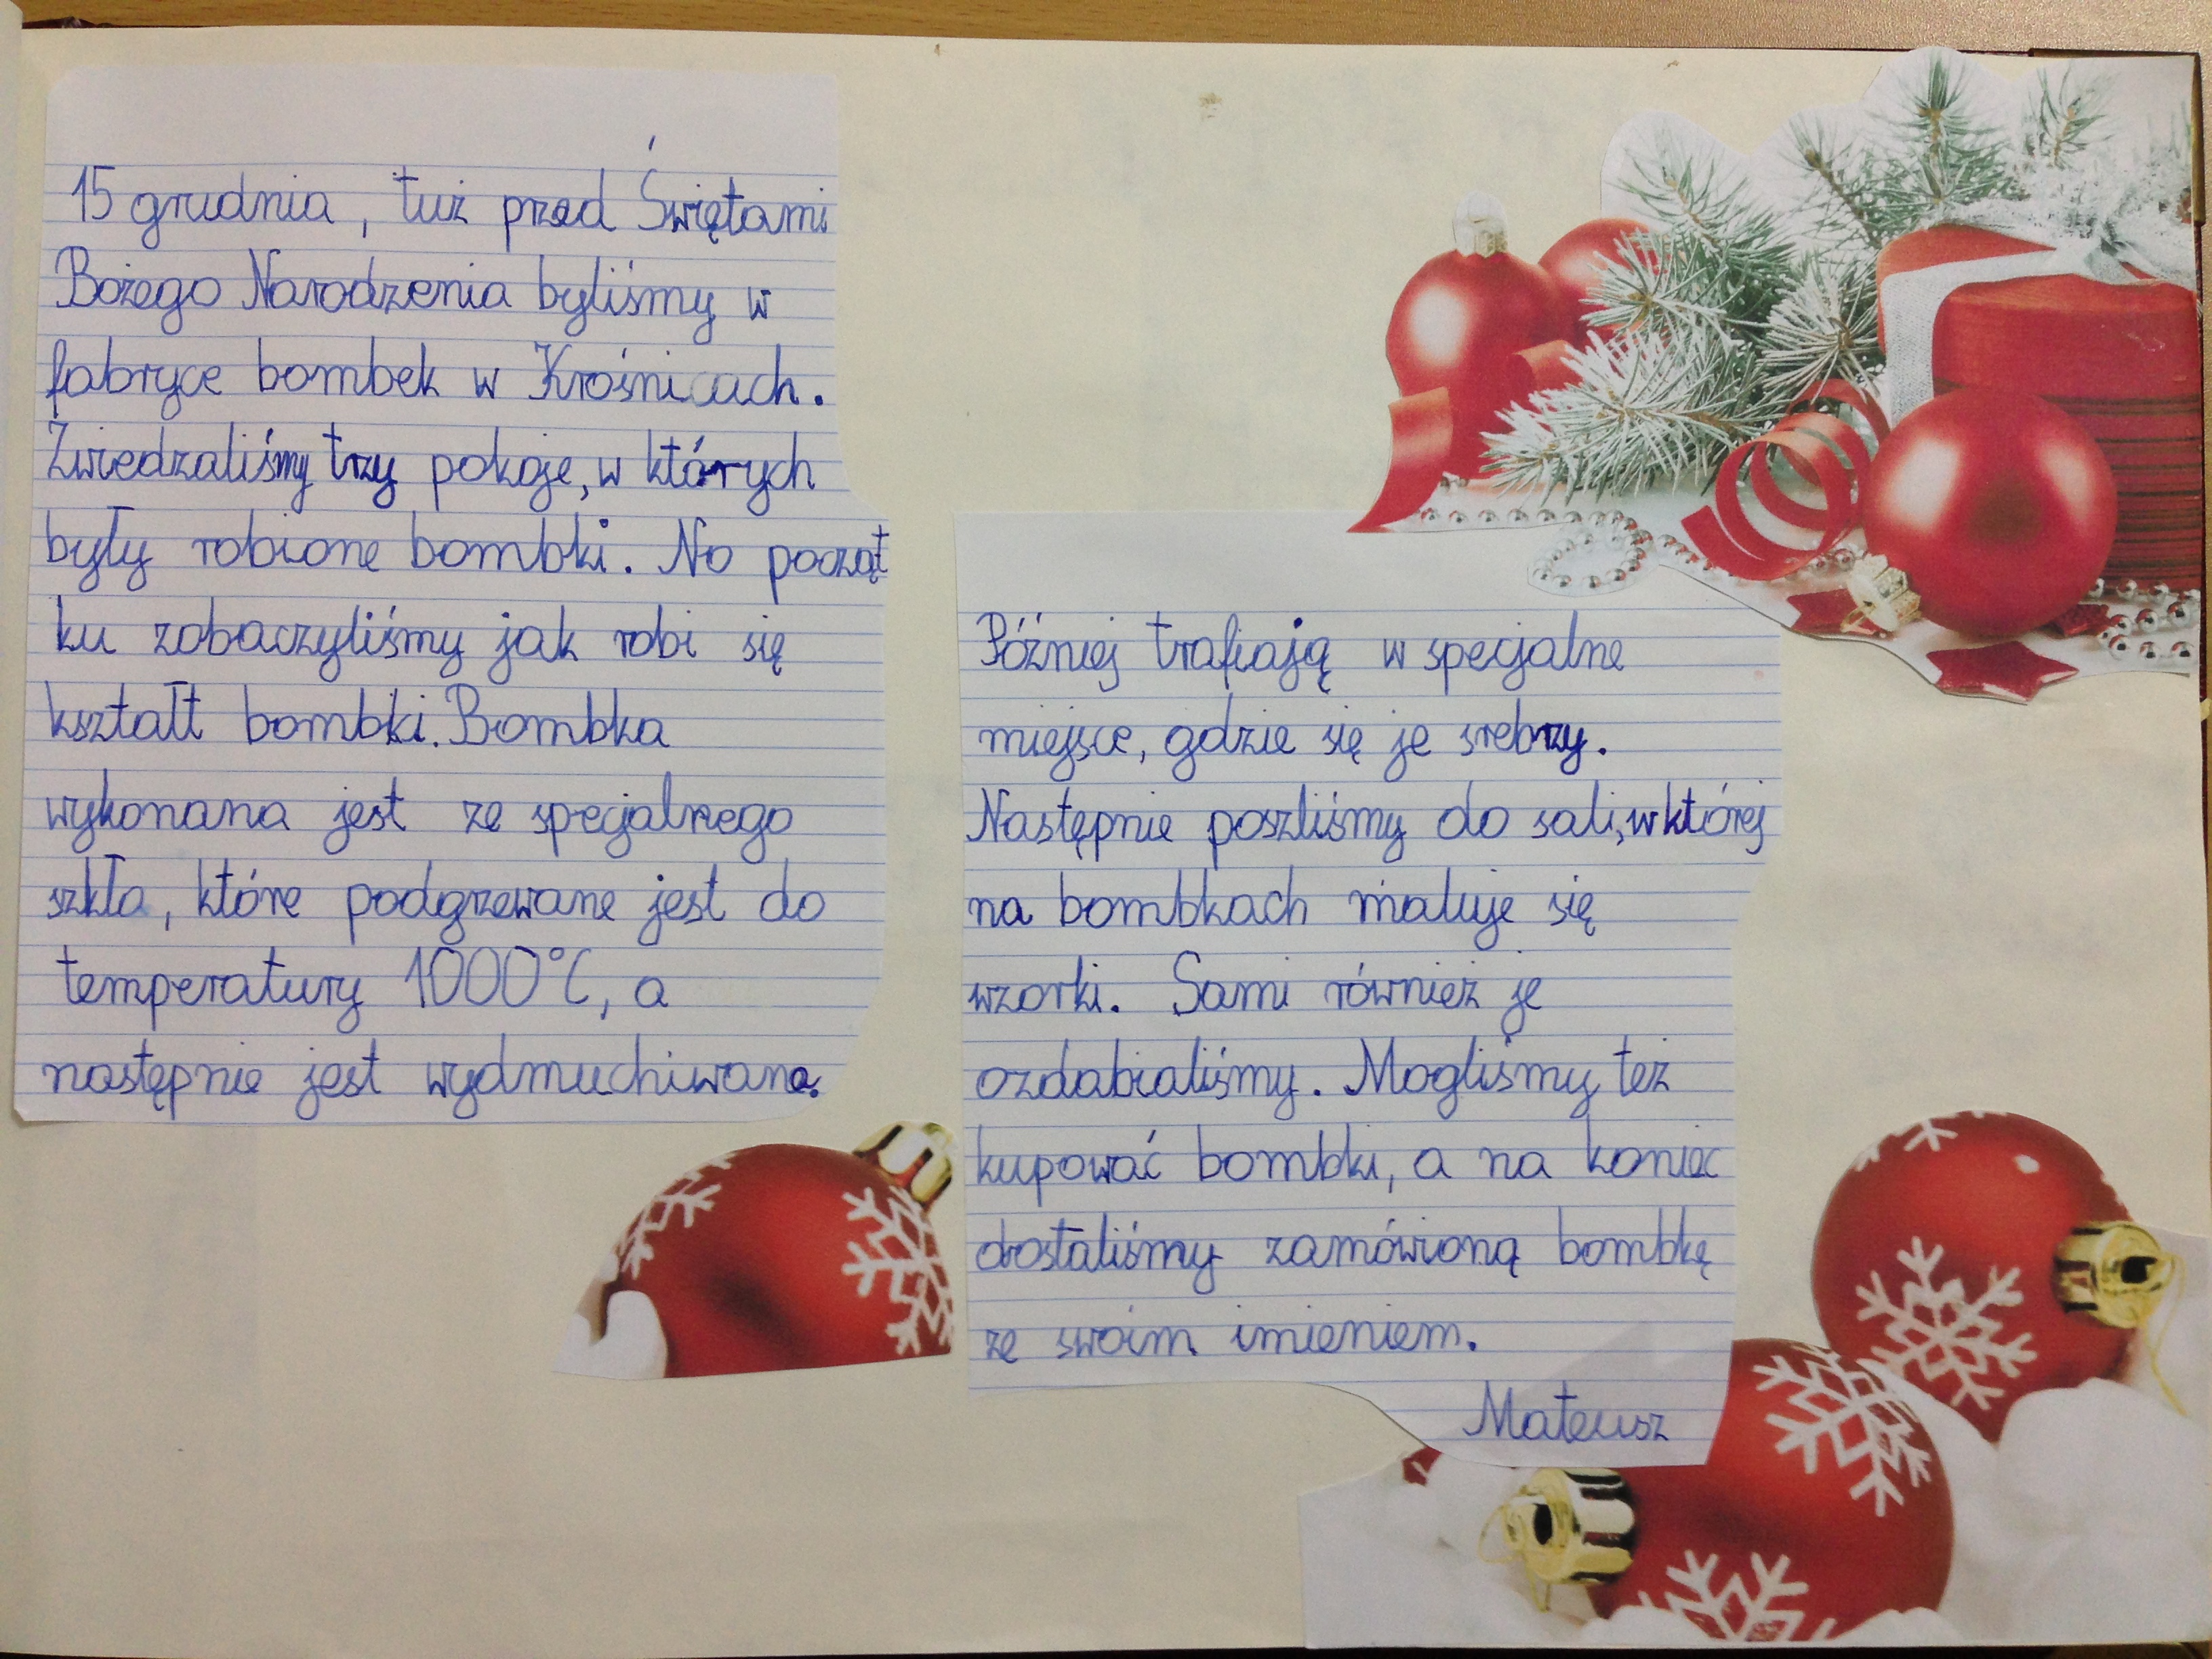 15 grudnia, tuż przed Świętami
Bożego Narodzenia byliśmy w
fabryce bombek w Krośnicach.
Zwiedzaliśmy trzy pokoje, w których
były robione bombki. Na począt
ku zobaczyliśmy jak robi się
kształt bombki. Bombka
wykonana jest ze specjalnego
szkła, które podgrzewane jest do
temperatury 1000°C, a
następnie jest wydmuchiwana.
Później trafiają w specjalne
miejsce, gdzie się je srebrzy.
Następnie poszliśmy do sali, w której
na bombkach maluje się
wzorki. Sami również je
ozdabialiśmy. Mogliśmy też
kupować bombki, a na koniec
dostaliśmy zamówioną bombkę
ze swoim imieniem.
Mateusz